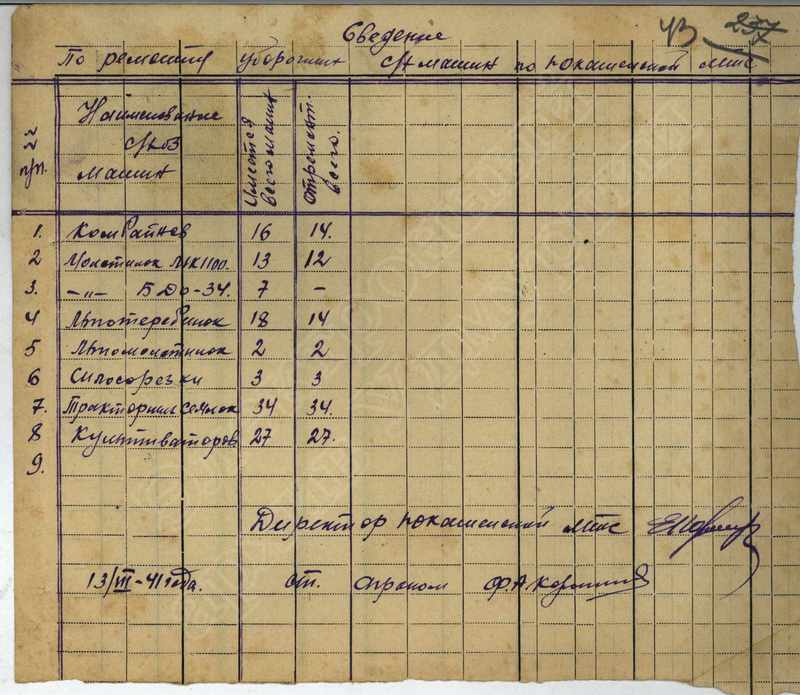 Сведение
43 237
По ремонту уборочных с/х машин по Покашенской МТС
№№ п/п. Наименование с/хоз машин Имеется всего машин Отремонт. всего.
1. Комбайнов 16 14.
2 Молотилок МК1100. 13 12
3. —„— БДО-34. 7 —
4 Льнотеребилок 18 14
5 Льномолотилок 2 2
6 Силосорезки 3 3
7. Тракторных сеялок 34 34.
8 Культиваторов 27 27.
9.
Директор Покашенской МТС
13/III-41 года. ст. агроном Ф.А.